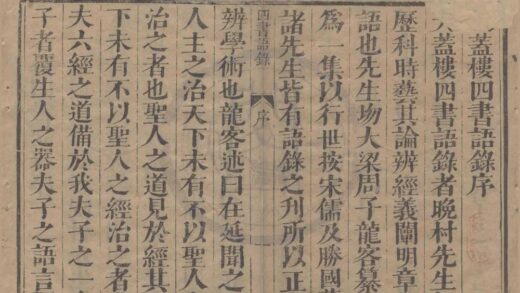 蓋樓四書語錄序
蓋樓四書語錄者晚村先生
歷科時藝其論辨經義闡明章
語也先生歾大梁周子龍客纂
為一集以行世按宋儒及勝國
諸先生皆有語錄之刊所以正
四書語錄
序
辨學術也龍客述曰在延聞之
人主之治天下未有不以聖人
治之者也聖人之道見於經其
下未有不以聖人之經治之者
夫六經之道備於我夫子之一
子者覆生人之器夫子之語言